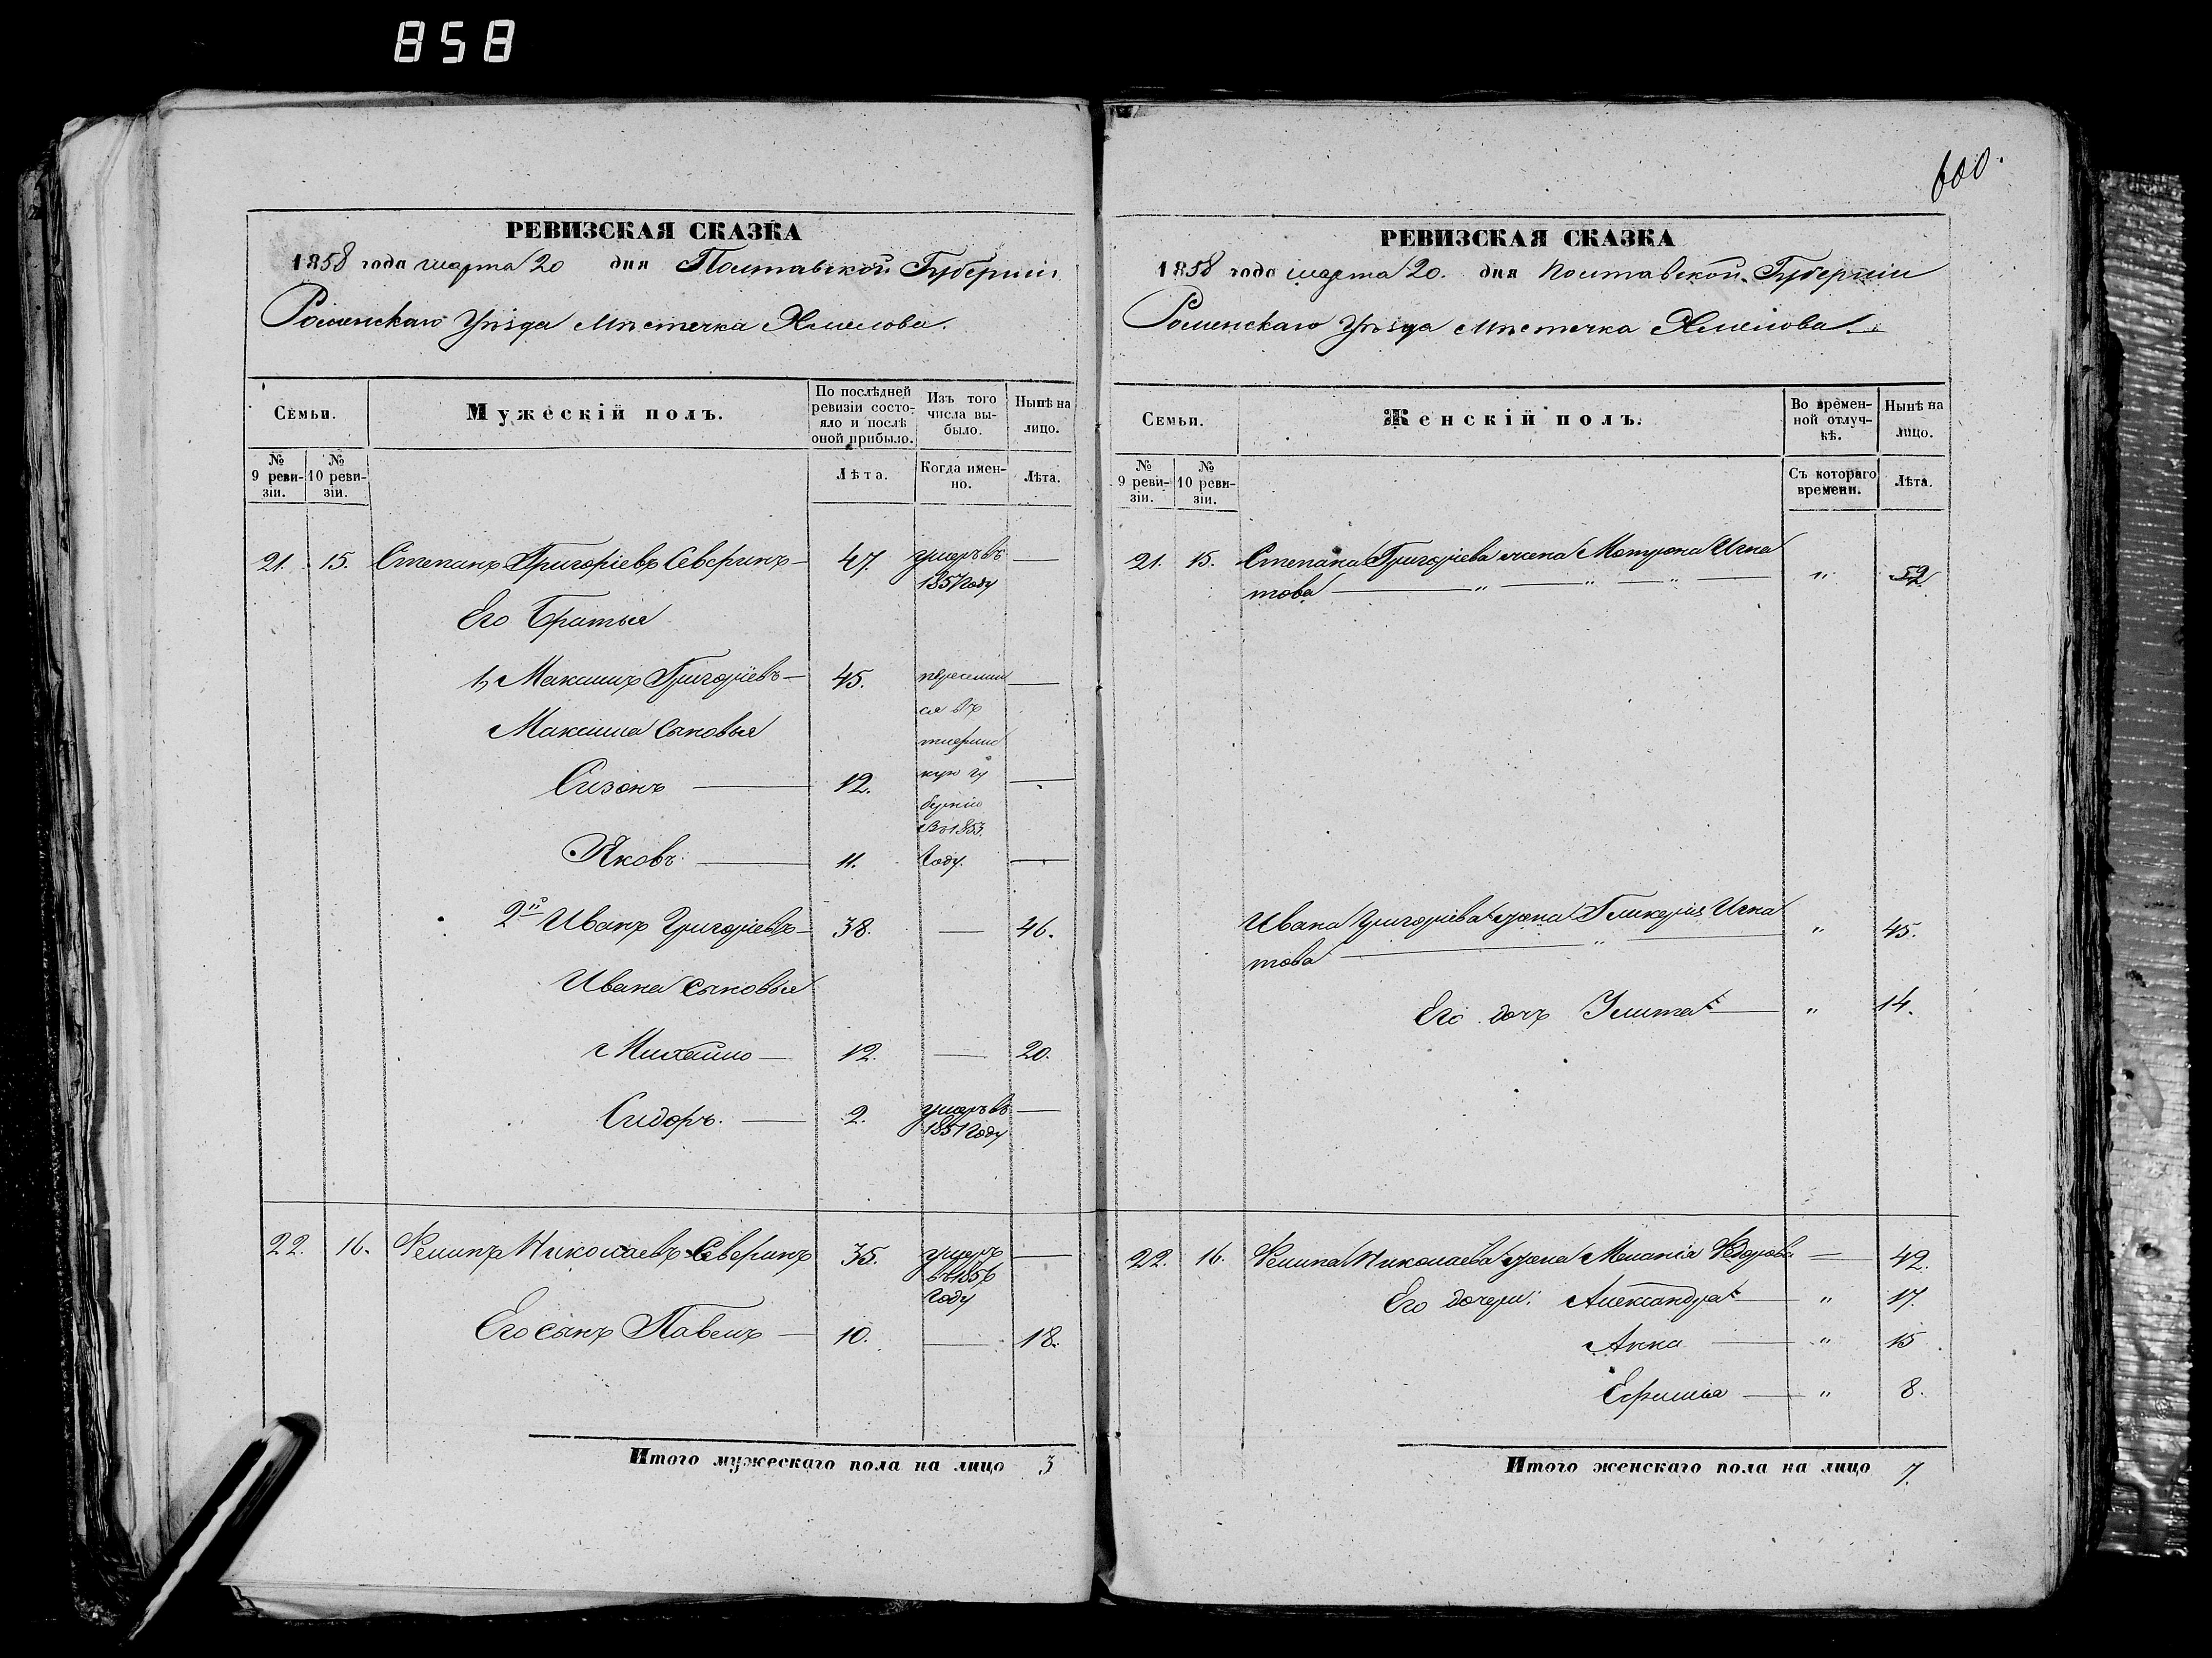 858
РЕВИЗСКАЯ СКАЗКА
1858 года марта 20 дня Полтавской Губерніи
Роменскаго Уѣзда Мѣстечка Хмелова.
Семьи.
Мужескій полъ.
По послѣдней ревизіи состояло и послѣ оной прибыло.
Изъ того числа выбыло.
Нынѣ на лицо.
№ 9 ревизіи.
№ 10 ревизіи.
Лѣта.
Когда именно.
Лѣта.
21. 15. Степанъ Григоріевъ Северинъ — 47. умеръ въ —
1851 году
Его Братья
1, Максимъ Григоріевъ — 45. переселил —
ся въ
Максима Сыновья
Сизонъ — 12. кую гу —
бернію
въ 1853.
Яковъ — 11. году. —
2й Иванъ Григоріевъ — 38. — 46.
Ивана сыновья
Михайло — 12. — 20.
Сидоръ. — 2. умеръ въ —
1851 году
22. 16. Филипъ Николаевъ Северинъ 35. умеръ —
въ 1856
году
Его сынъ Павелъ — 10. — 18.
Итого мужескаго пола на лицо 3
600.
РЕВИЗСКАЯ СКАЗКА
1858 года марта 20. дня Полтавской Губерніи
Роменскаго Уѣзда Мѣстечка Хмелова.
Семьи.
Женскій полъ.
Во временной отлучкѣ.
Нынѣ на лицо.
№ 9 ревизіи.
№ 10 ревизіи.
Съ котораго времени.
Лѣта.
21. 15. Степана Григоріева жена Мотрона Игна
това — „ — „ — „ — „ 52.
Ивана Григоріева жена Гликерія Игна „ 45.
това — „ —
Его дочь Улита — „ 14.
22. 16. Филипа Николаева жена Меланія Федорова — 42.
Его дочери: Александра — „ 17.
Анна — „ 15
Ефимья — „ 8.
Итого женскаго пола на лицо 7.